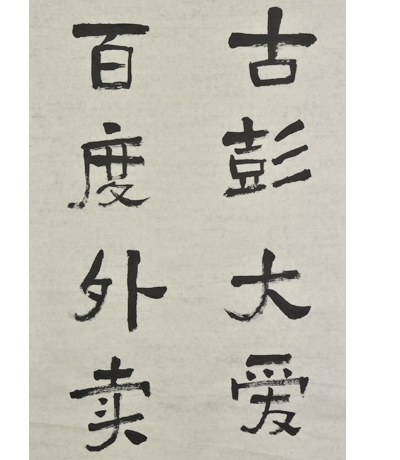 古彭大爱
百度外卖